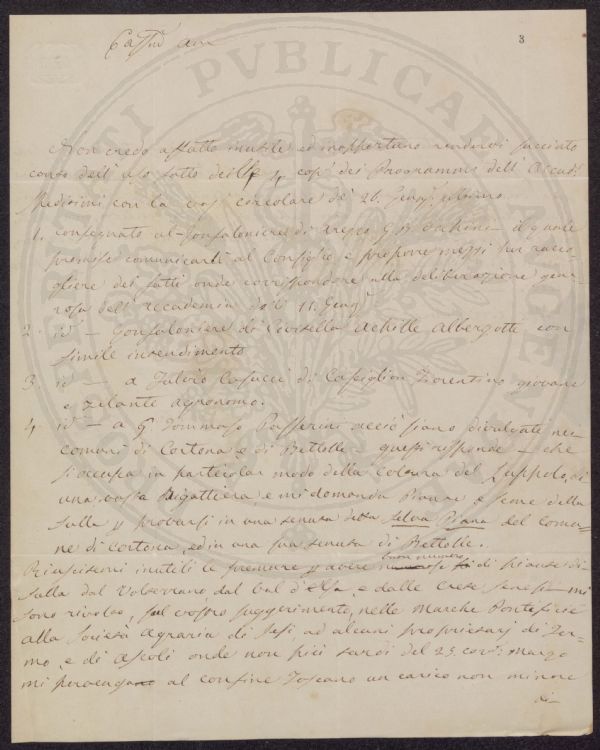 3
Non credo affatto inutile ed inopportuno rendervi succinto
conto dell'uso fatto delle 4 copie dei Programmi dell'Accad.
con la circolare de' 26. Genn.
1. consegnato al Gonfaloniere di Arezzo G B Occhini il quale
promise comunicarli al Consiglio e proporre mezzi per racco-
gliere dei fatti onde corrispondere alla deliberazione gene-
rosa dell'Accademia de' 11. Genn.
2. id — Gonfaloniere di Civitella Achille Albergotti con
simile intendimento
3. id — a Fulvio Casucci di Castiglion Fiorentino giovane
e zelante agronomo.
4. id — a G. Tommaso Passerini acciò siano divulgate nei
comuni di Cortona e di Bettolle — questi risponde — che
si occupa in particolar modo della coltura del Luppolo, di
una vasta Bigattiera e mi domanda Piante e seme della
Sulla p provarsi in una tenuta detta Selva Piana del Comu-
ne di Cortona, ed in una sua tenuta di Bettolle.
Riuscitemi inutili le premure p avere buon numero di piante di
Sulla dal Volterrano, dal Val d'Elsa e dalle Crete Senesi — mi
sono rivolto, sul vostro suggerimento, nelle Marche Pontificie
alla Società Agraria di Jesi, ad alcuni proprietarj di Fer-
mo, e di Ascoli onde non più tardi del 25 corr. marzo
mi pervenga al confine Toscano un carico non minore
di